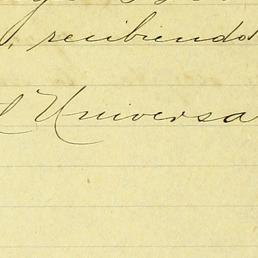 , recibiendo
l Universa